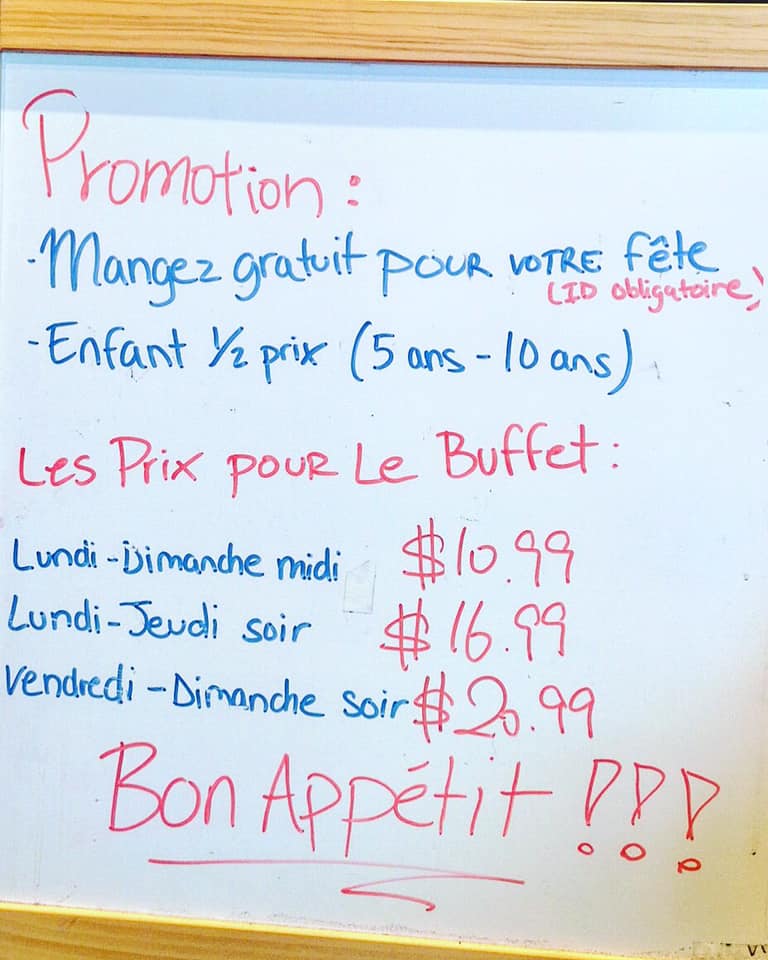 Promotion :
- Mangez gratuit pour votre fête
(ID obligatoire)
- Enfant ½ prix (5 ans - 10 ans)
Les Prix pour Le Buffet :
Lundi - Dimanche midi $10.99
Lundi - Jeudi soir $16.99
Vendredi - Dimanche soir $20.99
Bon Appétit !!!